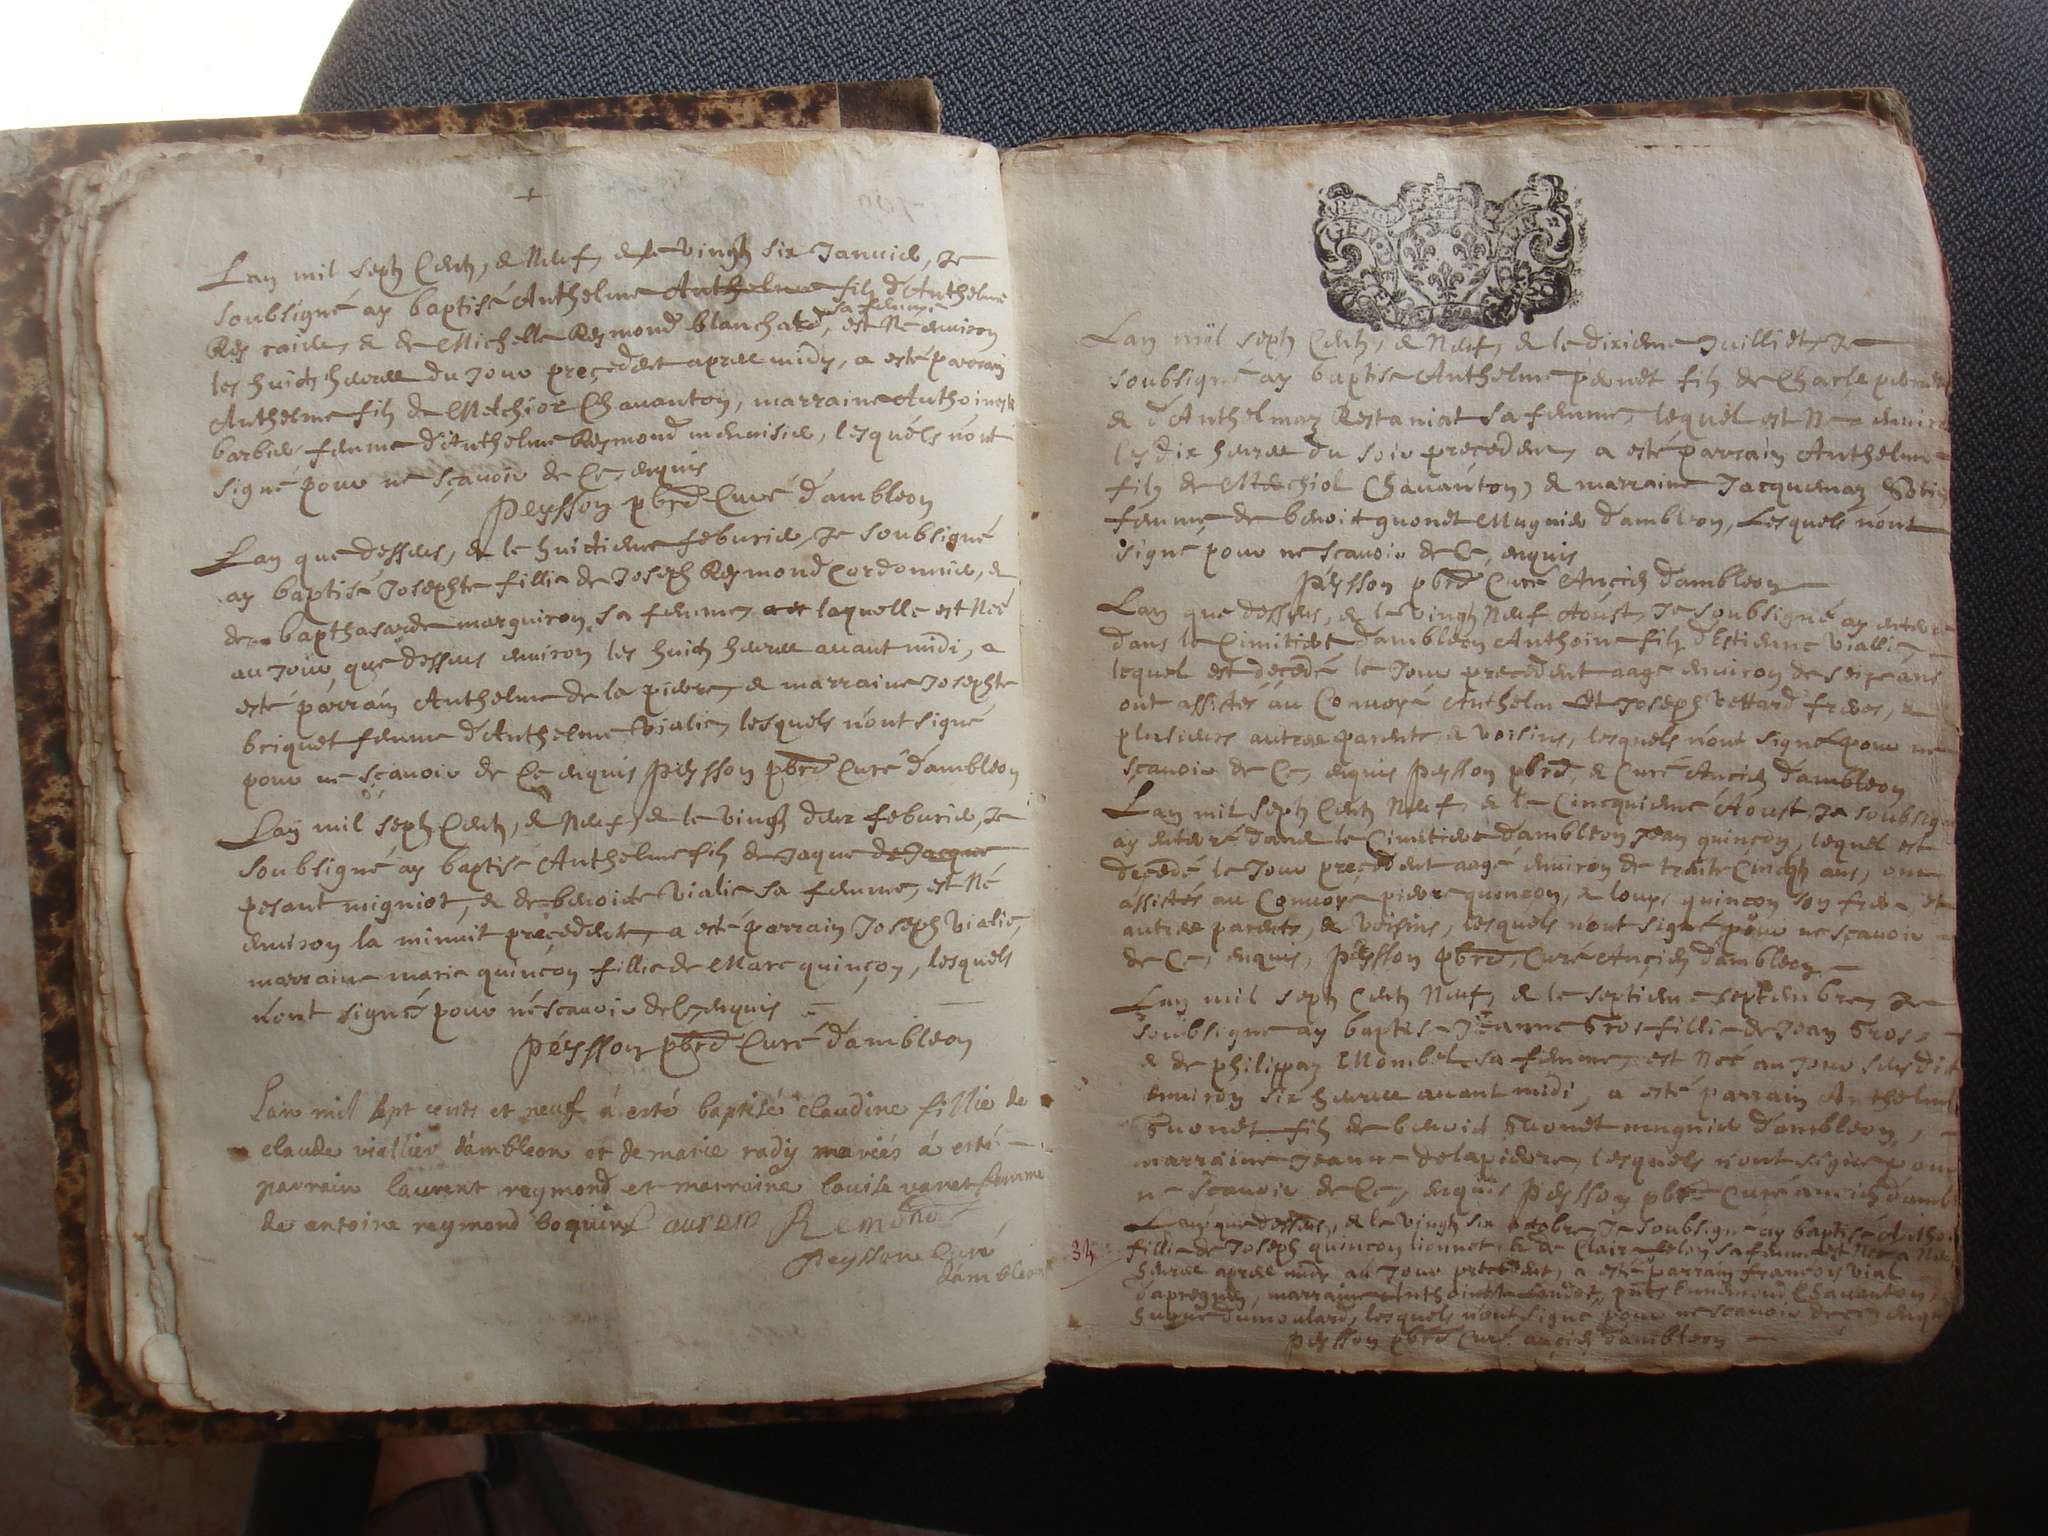 Lan mil sept Cents, & Neuf, & le vingt six Januier, Je
soubsigné ay baptisé Anthelme Anthelme filz d'Anthelme
sa femme
Rey & de Michelle Reymond blanchard, est Né enuiron
les huict heures du Jour precedent apres midy, a esté parrain
Anthelme filz de Melchior Chauanton, marraine Anthoinette
barbier femme d'Anthelme Reymond menuisier, lesquels n'ont
signé pour ne sçauoir de Ce, enquis
Peysson pbre Curé d'ambleon
Lan que dessus, & le huictieme feburier, Je soubsigné
ay baptisé Josephte fillie de Joseph Reymond Cordonnier, &
de bapthasarde marguiron sa femme, laquelle est Neé
au Jour que dessus enuiron les huict heures auant midi, a
esté parrain Anthelme de la pierre, & marraine Josephte
briquet femme d'Anthelme Vialie, lesquels n'ont signé
pour ne sçauoir de Ce enquis Peysson pbre Curé d'ambleon
Lan mil sept Cents, & Neuf, & le vingt deux feburier, Je
soubsigné ay baptisé Anthelme filz de Jaque de Jacque
pesant migniot, & de benoite Vialie sa femme, est Né
enuiron la minuit precedente, a esté parrain Joseph Vialie,
marraine marie quinçon fillie de Marc quinçon, lesquels
n'ont signés pour ne scauoir de Ce enquis
Peysson pbre Curé d'ambleon
Lan mil sept cents et neuf á esté baptisé claudine fillie de
claude viallier d'ambleon et de marie rady mariés á esté
parrain laurent reymond et marraine louise varet femme
de antoine reymond boquin Laurem Remond
Peysson Curé
d'ambleon
Lan mil sept Cents, & Neuf, & le dixieme Juilliet, Je
soubsigné ay baptisé Anthelme filz de Charle
& d'Anthelmaz Restaniat sa femme, lequel est Ne
les dix heures du soir precedent, a esté parrain Anthelme
filz de Melchiol Chauanton, & marraine Jacquemaz
femme de benoit guonet Mugnier d'ambleon, Lesquels n'ont
signé pour ne scauoir de Ce, enquis
Peysson pbre Curé Ancien d'ambleon
Lan que dessus, & le vingt Neuf Aoust, Je soubsigné ay
dans le Cimitiere d'ambleon Anthoine filz d'Estienne Viallie,
lequel est decedé le Jour precedent aagé enuiron de seize ans
ont assistés au Conuoyé Anthelme et Joseph Vettard freres, &
plusieurs autres parents, & voisins, lesquels n'ont signé pour ne
sçauoir de Ce, enquis Peysson pbre, & Curé Ancien d'ambleon
Lan mil sept Cents Neuf, & le Cincquieme Aoust, Je
ay enterré dans le Cimitiere d'ambleon Jean quinçon, lequel est
decedé le Jour precedent aagé enuiron de trente Cincq ans, ont
assistés au Conuoyé pierre quinçon, & loups quinçon son frere, et
autres parents, & Voisins, lesquels n'ont signé pour ne sçauoir
de Ce, enquis, Peysson pbre, Curé Ancien d'ambleon
Lan mil sept Cents Neuf, & le septieme septembre, Je
soubsigne ay baptisé Jeanne Gros fillie de Jean Gros,
& de philippaz Mombel sa femme, est Neé au Jour susdit
enuiron six heures auant midi, a esté parrain Anthelme
Guonet filz de benoit Guonet mugnier d'ambleon,
marraine Jeanne delapierre, lesquels n'ont signé pour
ne scauoir de Ce, enquis Peysson pbre Curé ancien
Lan que dessus, & le vingt six octobre, Je soubsigné ay baptisé
34
fillie de Joseph quinçon lionnet, & de Claire sa femme est Neé a
heures apres midy au Jour precedent, a esté parrain françois vial
marraine Chauanton
dumoulard, lesquels n'ont signé pour ne scauoir de ce
Peysson pbre Curé ancien d'ambleon